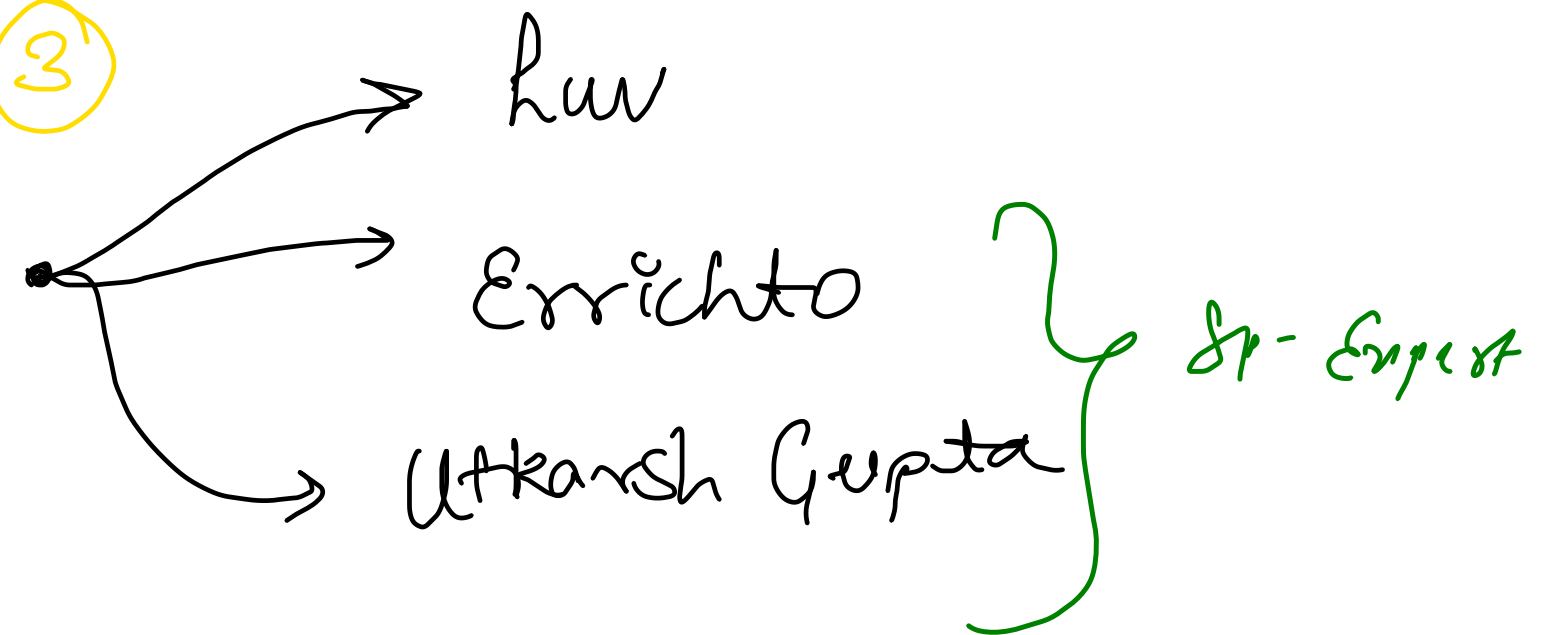 3
Luv
Errichto
Utkarsh Gupta
- Expert